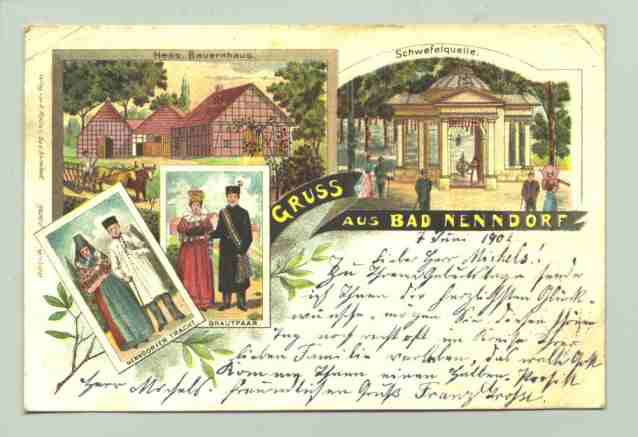 Hess. Bauernhaus.
Schwefelquelle.
GRUSS
AUS BAD NENNDORF
NENNDORFER TRACHT
BRAUTPAAR
7 Juni 190
Lieber Herr Michels!
Zu Ihrem Geburtstage sende
ich Ihnen die herzlichsten Glück-
wünsche - mögen Sie diesen schönen
Tag noch recht oft im Kreise Ihrer
lieben Familie verleben, das walte Gott
Komm Ihnen einen halben -
Herr Michels - freundlichen Gruß Franz